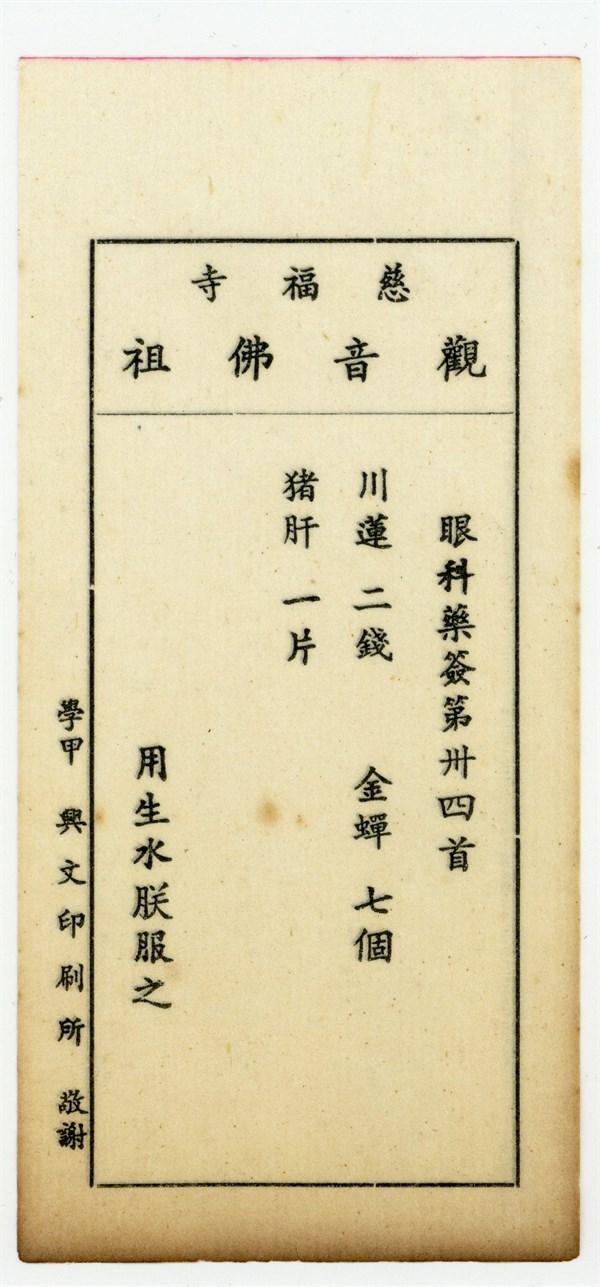 慈福寺
觀音佛祖
眼科藥簽第卅四首
川蓮 二錢 金蟬 七個
猪肝 一片
用生水朕服之
學甲 興文印刷所 敬謝